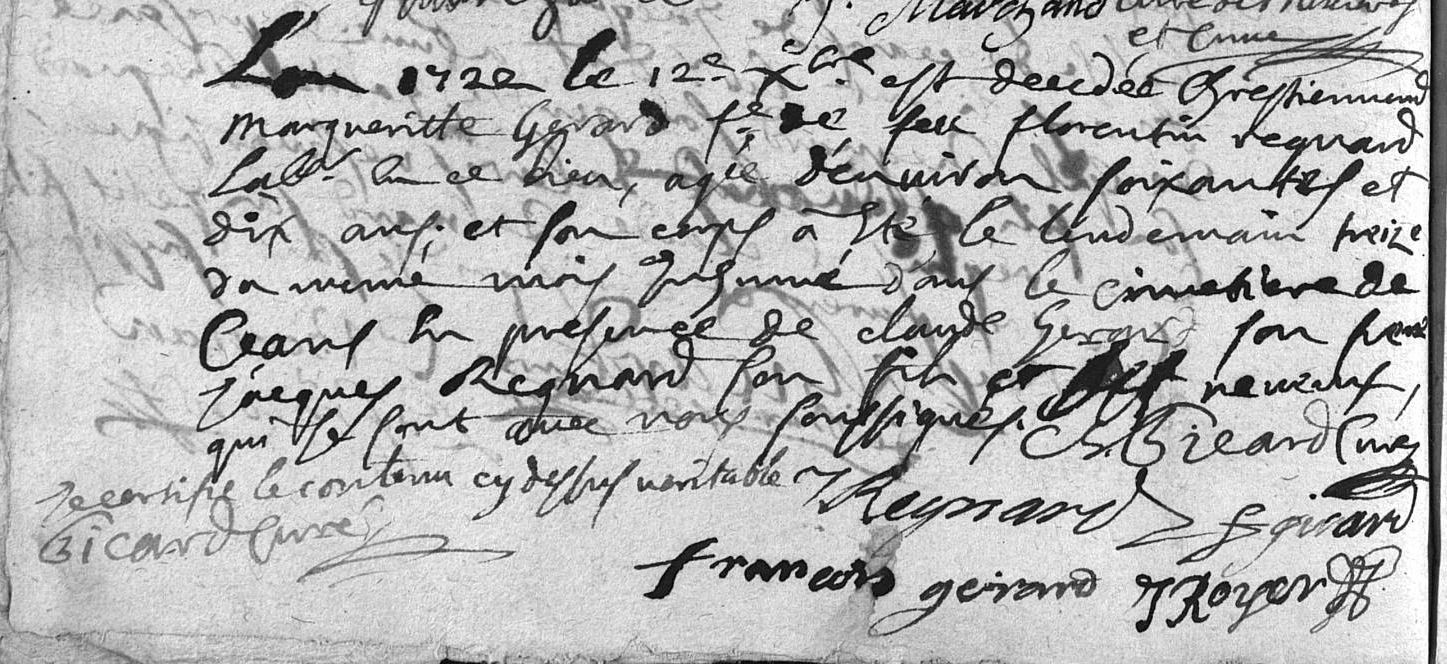 J. Marchand curé des
et Cune
L'an 1722 le 12e Xbre est decedée Chrestiennement
Margueritte Gerard fe de feu florentin regnard
Labr. en ce lieu, agée d'environ soixantes et
dix ans, et son corps a Eté le lendemain treize
du meme mois Inhumé dans le cimetiere de
Ceans En presence de claude Gerard son frere
Jacques Regnard son fils et neveux,
qui se sont avec nous soussignes. Bicard Curé
Je certifie le contenu cy dessus veritable J Regnard girard
Bicard Curé
francois geirard J Royer